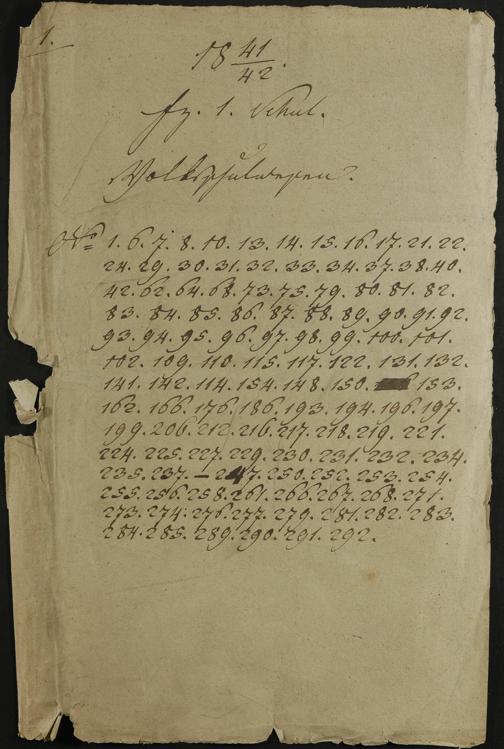 1.
18 41/42.
fz. 1. Schul.
Volksschulwesen.
No 1. 6. 7. 8. 10. 13. 14. 15. 16. 17. 21. 22.
24. 29. 30. 31. 32. 33. 34. 37. 38. 40.
42. 62. 64. 68. 73. 75. 79. 80. 81. 82.
83. 84. 85. 86. 87. 88. 89. 90. 91. 92.
93. 94. 95. 96. 97. 98. 99. 100. 101.
102. 109. 110. 115. 117. 122. 131. 132.
141. 142. 114. 154. 148. 150. 153.
162. 166. 176. 186. 193. 194. 196. 197.
199. 206. 212. 216. 217. 218. 219. 221.
224. 225. 227. 229. 230. 231. 232. 234.
235. 237. — 247. 250. 252. 253. 254.
255. 256. 258. 261. 266. 267. 268. 271.
273. 274. 276. 277. 279. 281. 282. 283.
284. 285. 289. 290. 291. 292.